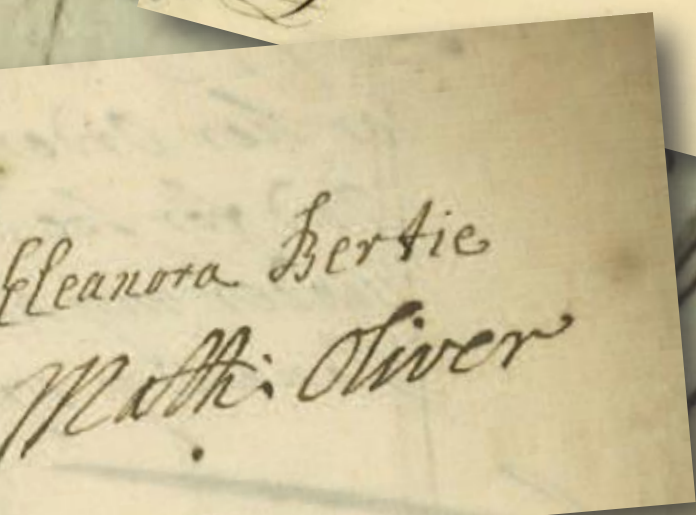 Eleanora Bertie
Matth: Oliver